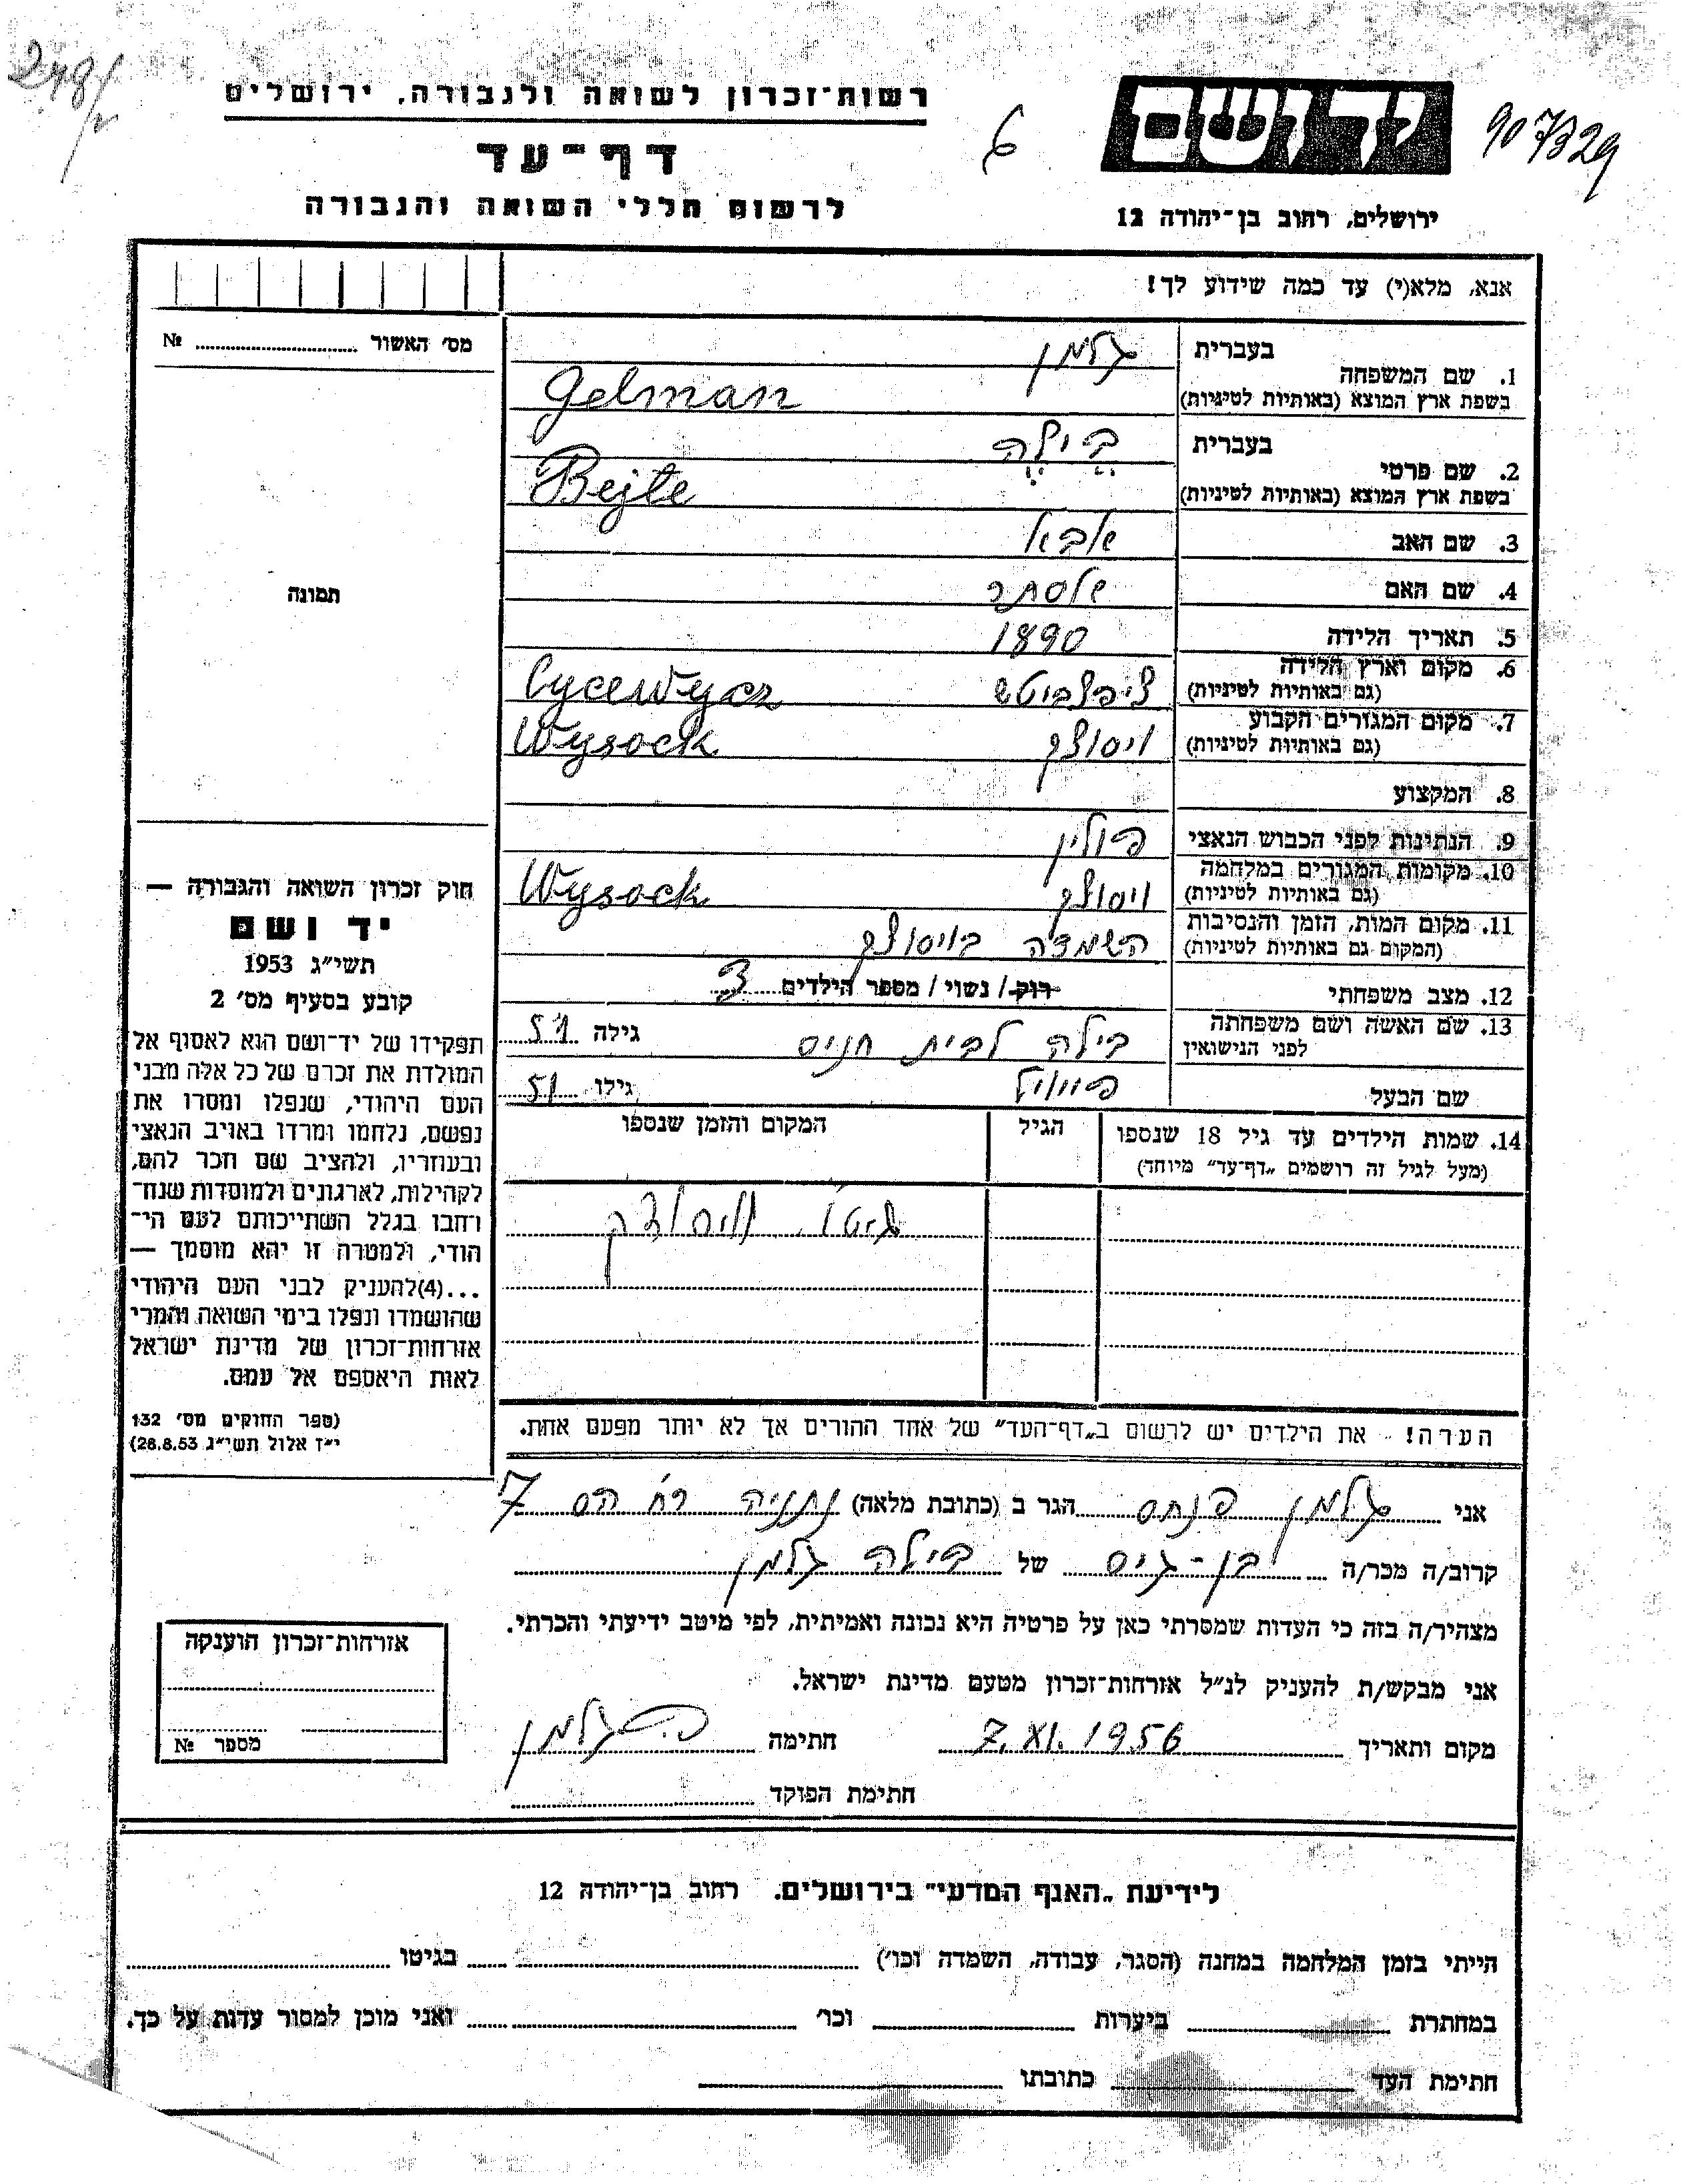 רשות־זכרון לשואה ולגבורה, ירושלים
דף־עד
לרשום חללי השואה והגבורה
יד ושם
907329
6
ירושלים, רחוב בן־יהודה 12
אנא, מלא(י) עד כמה שידוע לך!
מס׳ האשור № ........
בעברית גלמן
1. שם המשפחה
בשפת ארץ המוצא (באותיות לטיניות) Gelman
בעברית ביילה
2. שם פרטי
בשפת ארץ המוצא (באותיות לטיניות) Bejle
3. שם האב אבא
4. שם האם אסתר
5. תאריך הלידה 1890
6. מקום וארץ הלידה
(גם באותיות לטיניות) Cycewycz
7. מקום המגורים הקבוע
(גם באותיות לטיניות) ויסוצק Wysock
8. המקצוע
9. הנתינות לפני הכבוש הנאצי פולין
10. מקומות המגורים במלחמה
(גם באותיות לטיניות) ויסוצק Wysock
11. מקום המות, הזמן והנסיבות
(המקום גם באותיות לטיניות) השמדה בויסוצק
12. מצב משפחתי רוק / נשוי / מספר הילדים 3
13. שם האשה ושם משפחתה
לפני הנישואין בילה לבית חניס גילה 51
שם הבעל גילו 51
14. שמות הילדים עד גיל 18 שנספו הגיל המקום והזמן שנספו
(מעל לגיל זה רושמים „דף־עד״ מיוחד)
גיטו ויסוצק
הערה! - את הילדים יש לרשום ב„דף־העד״ של אחד ההורים אך לא יותר מפעם אחת.
תמונה
חוק זכרון השואה והגבורה —
יד ושם
תשי״ג 1953
קובע בסעיף מס׳ 2
תפקידו של יד־ושם הוא לאסוף אל
המולדת את זכרם של כל אלה מבני
העם היהודי, שנפלו ומסרו את
נפשם, נלחמו ומרדו באויב הנאצי
ובעוזריו, ולהציב שם וזכר להם,
לקהילות, לארגונים ולמוסדות שנח־
רחבו בגלל השתייכותם לעם הי־
הודי, ולמטרה זו יהא מוסמך —
...(4)להעניק לבני העם היהודי
שהושמדו ונפלו בימי השואה והמרי
אזרחות־זכרון של מדינת ישראל
לאות היאספם אל עמם.
(ספר החוקים מס׳ 132
י״ז אלול תשי״ג 28.8.53)
אני גלמן פנחס הגר ב (כתובת מלאה) נתניה רח׳ הס 7
קרוב/ה מכר/ה בן-גיס של ביילה גלמן
מצהיר/ה בזה כי העדות שמסרתי כאן על פרטיה היא נכונה ואמיתית, לפי מיטב ידיעתי והכרתי.
אני מבקש/ת להעניק לנ״ל אזרחות־זכרון מטעם מדינת ישראל.
מקום ותאריך 7. XI. 1956 חתימה פ. גלמן
חתימת הפוקד
אזרחות־זכרון הוענקה
מספר №
לידיעת „האגף המדעי״ בירושלים. רחוב בן־יהודה 12
הייתי בזמן המלחמה במחנה (הסגר, עבודה, השמדה וכו׳) ........ בגיטו ........
במחתרת ........ ביערות ........ וכו׳ ........ ואני מוכן למסור עדות על כך.
חתימת העד ........ כתובתו ........